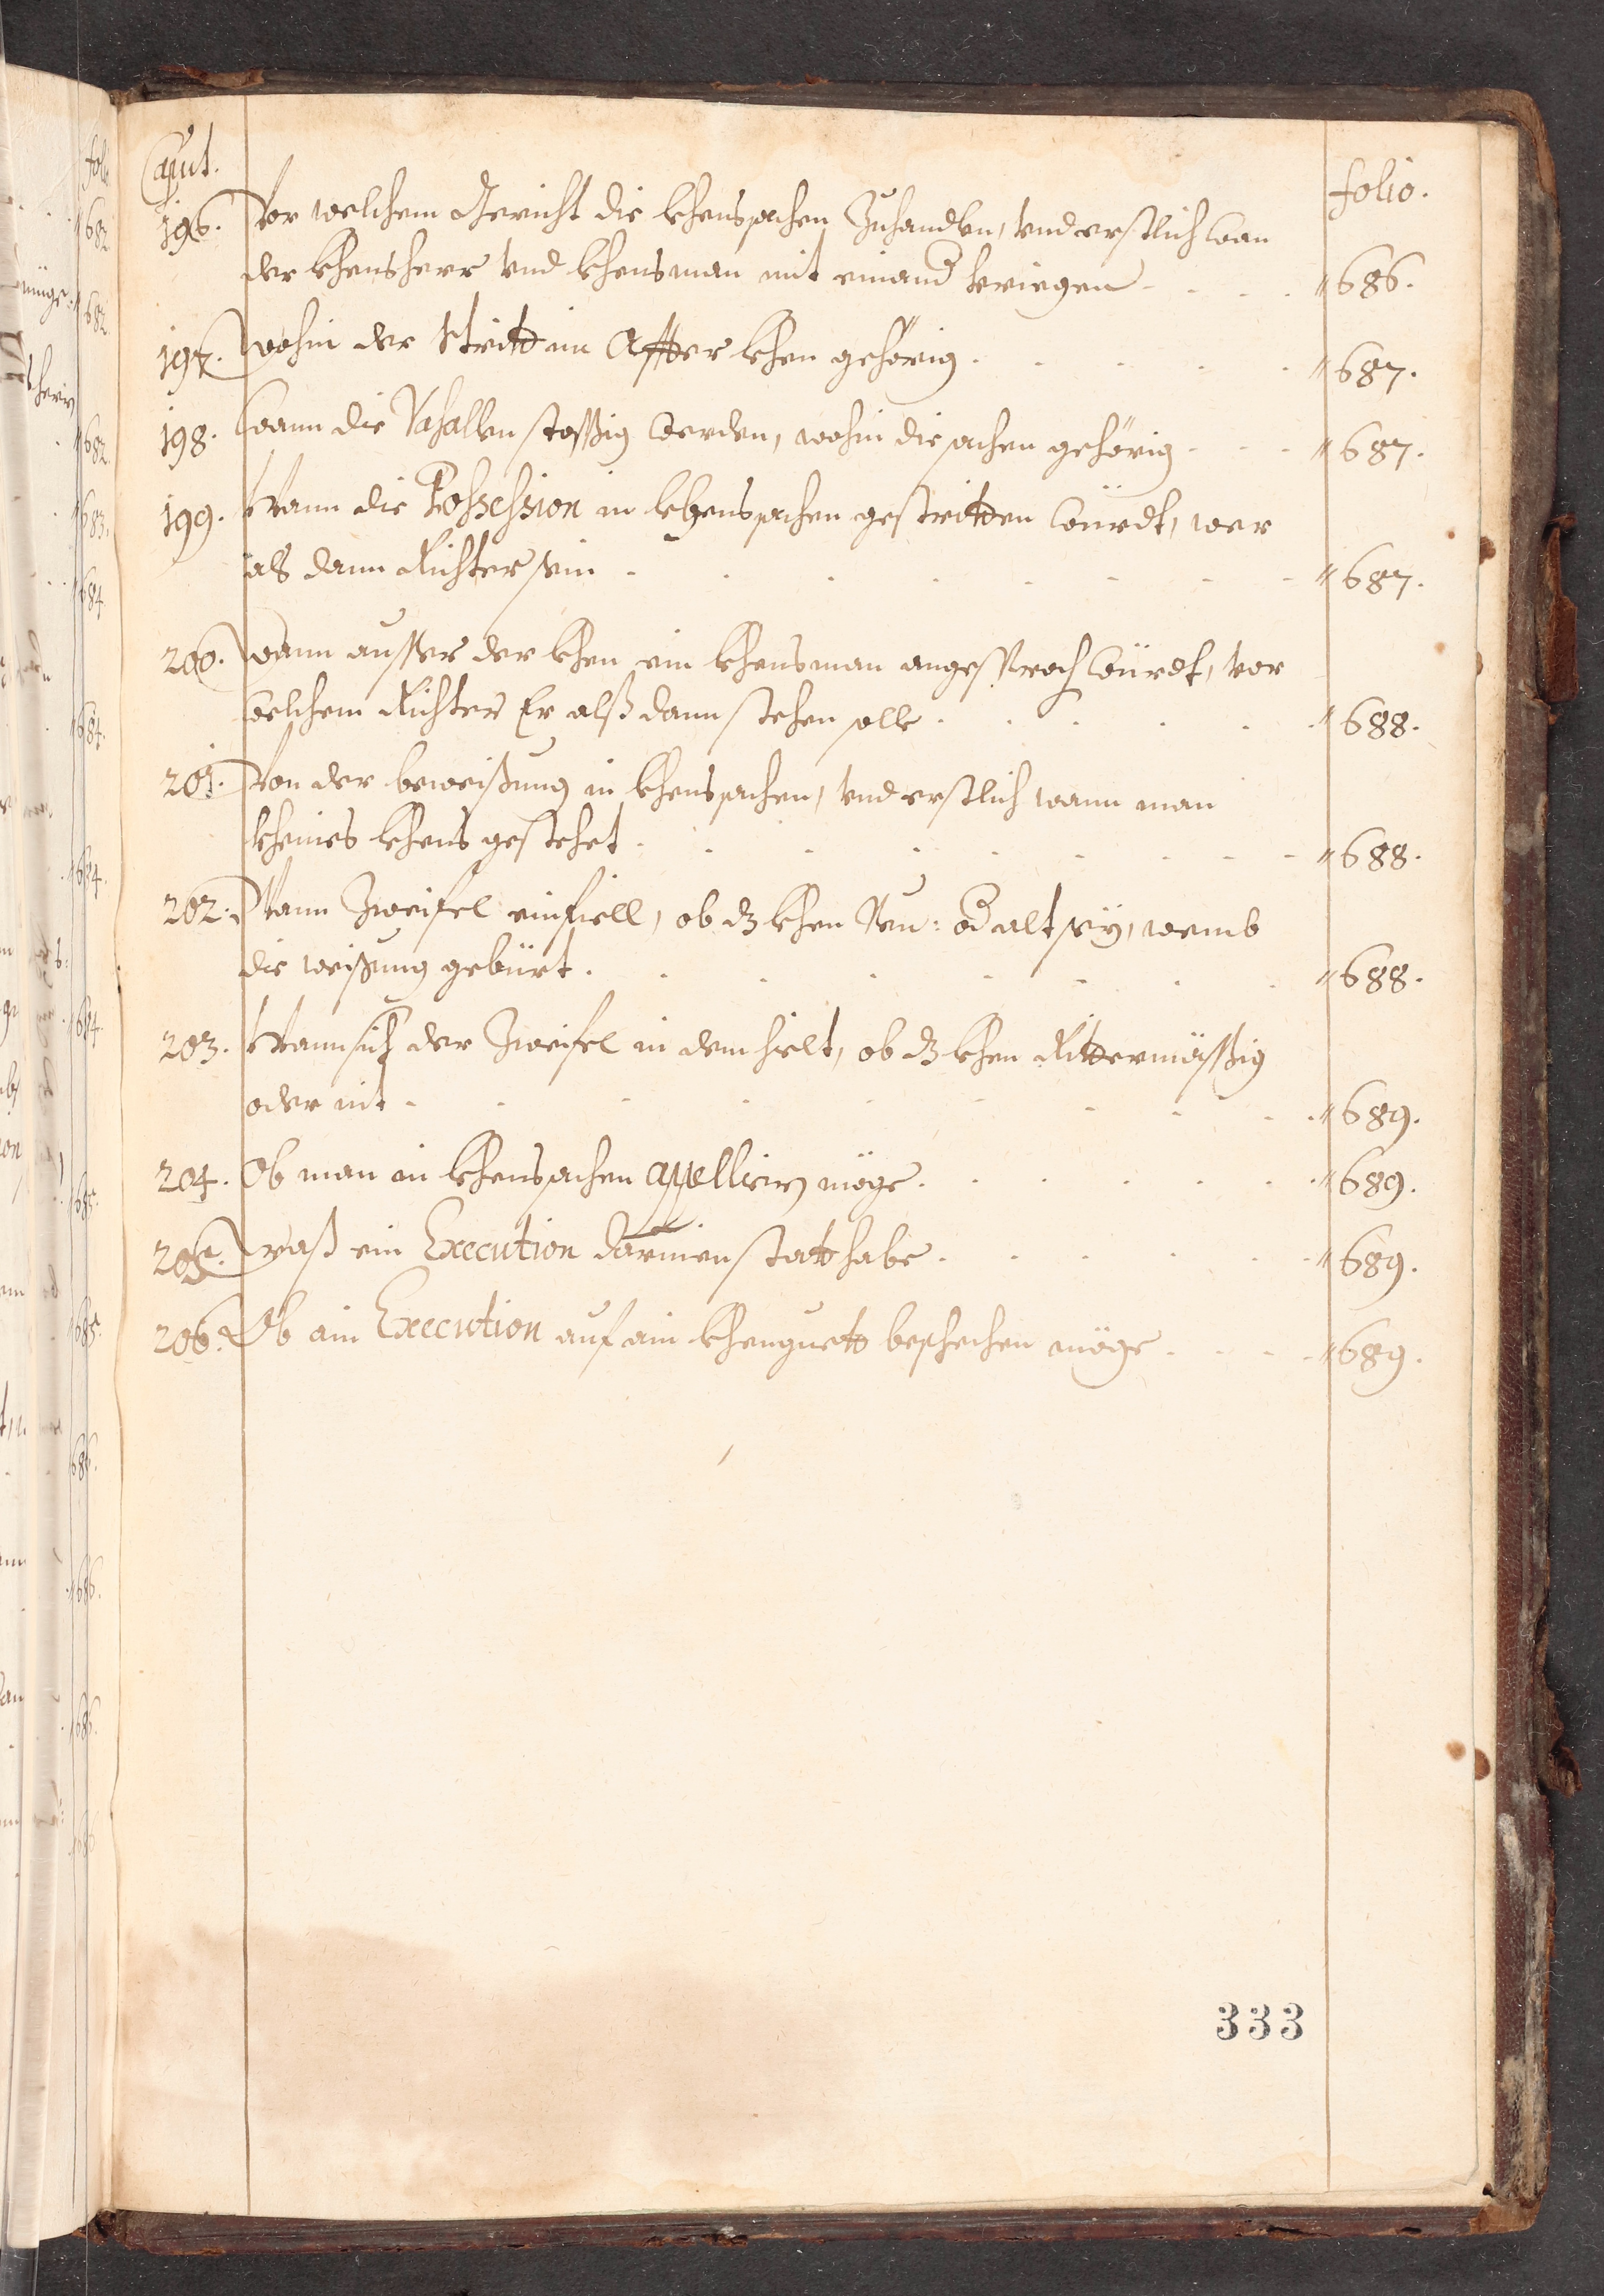 Caput.
folio.
196. Vor welchem Gericht die lehensachen Zuhandlen, vnd erstlich wan
der lehensherr vnd lehensman mit einand kriegen - - - - " 686.
197. Wohin der Stritt im Affter lehen gehörig. - - - - " 687.
198. Wann die Vasallen stossig werden, wohin die sachen gehörig - - - " 687.
199. Wann die Possession in lehensachen gestritten würdt, wer
alß dann Richter sein - - - - - - - - " 687.
200. Wann ausser der lehen ein lehensman angesproch würdt, vor
welchem Richter Er alß dann stehen solle. - - - - - " 688.
201. Von der beweisung in lehensachen, vnd erstlich wann man
kheines lehens gestehet. - - - - - - - - " 688.
202. Wann Zweifel einfiell, ob dz lehen Neu: od alt sey, wemb
die weisung gebürt. - - - - - - - - " 688.
203. Wann sich der Zweifel in dem hielt, ob dz lehen Rittermässig
oder nit - - - - - - - - - " 689.
204. Ob man in lehensachen appelliern möge. - - - - - " 689.
205. Waß ein Execution darinen statt habe. - - - - - " 689.
206. Ob ain Execution auf ain lehenguett beschechen möge - - - - " 689.
333